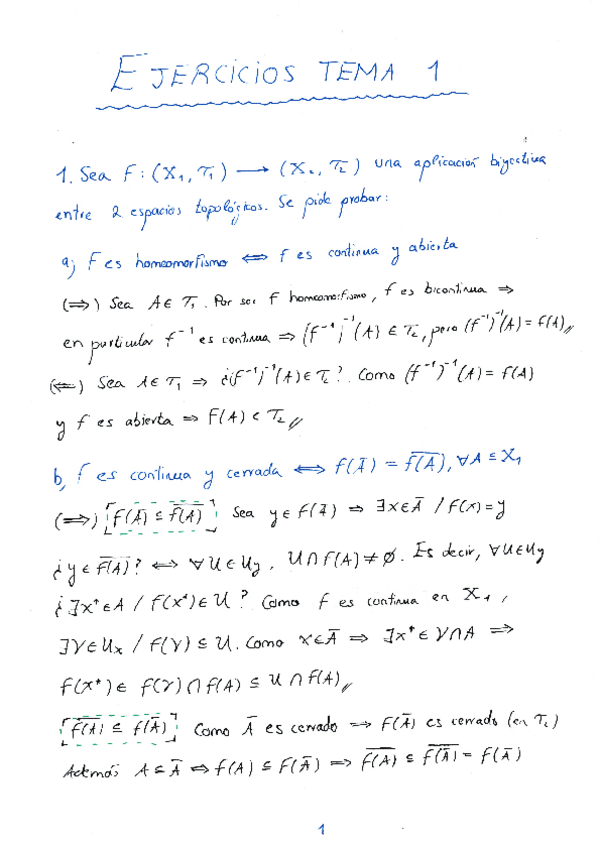 EJERCICIOS TEMA 1
1. Sea F: (X₁, T₁) → (X₂, T₂) una aplicación biyectiva
entre 2 espacios topológicos. Se pide probar:
a) F es homeomorfismo ⇔ f es continua y abierta
(⇒) Sea A ∈ T₁. Por ser f homeomorfismo, f es bicontinua ⇒
en particular f⁻¹ es continua ⇒ (f⁻¹)⁻¹(A) ∈ T₂, pero (f⁻¹)⁻¹(A) = f(A)//
(⇐) Sea A ∈ T₁ ⇒ ¿(f⁻¹)⁻¹(A) ∈ T₂?. Como (f⁻¹)⁻¹(A) = f(A)
y f es abierta ⇒ F(A) ∈ T₂//
b) f es continua y cerrada ⇔ f(Ā) = \overline{f(A)}, ∀A ⊆ X₁
(⇒) f(Ā) ⊆ \overline{f(A)} Sea y ∈ f(Ā) ⇒ ∃x ∈ Ā / f(x) = y
¿y ∈ \overline{f(A)}? ⇔ ∀U ∈ U_y, U ∩ f(A) ≠ ∅. Es decir, ∀U ∈ U_y
¿∃x* ∈ A / f(x*) ∈ U? Como f es continua en X₁,
∃V ∈ U_x / f(V) ⊆ U. Como x ∈ Ā ⇒ ∃x* ∈ V ∩ A ⇒
f(x*) ∈ f(V) ∩ f(A) ⊆ U ∩ f(A)//
\overline{f(A)} ⊆ f(Ā) Como Ā es cerrado ⇒ f(Ā) es cerrado (en T₂)
Además A ⊆ Ā ⇒ f(A) ⊆ f(Ā) ⇒ \overline{f(A)} ⊆ \overline{f(Ā)} = f(Ā)
1